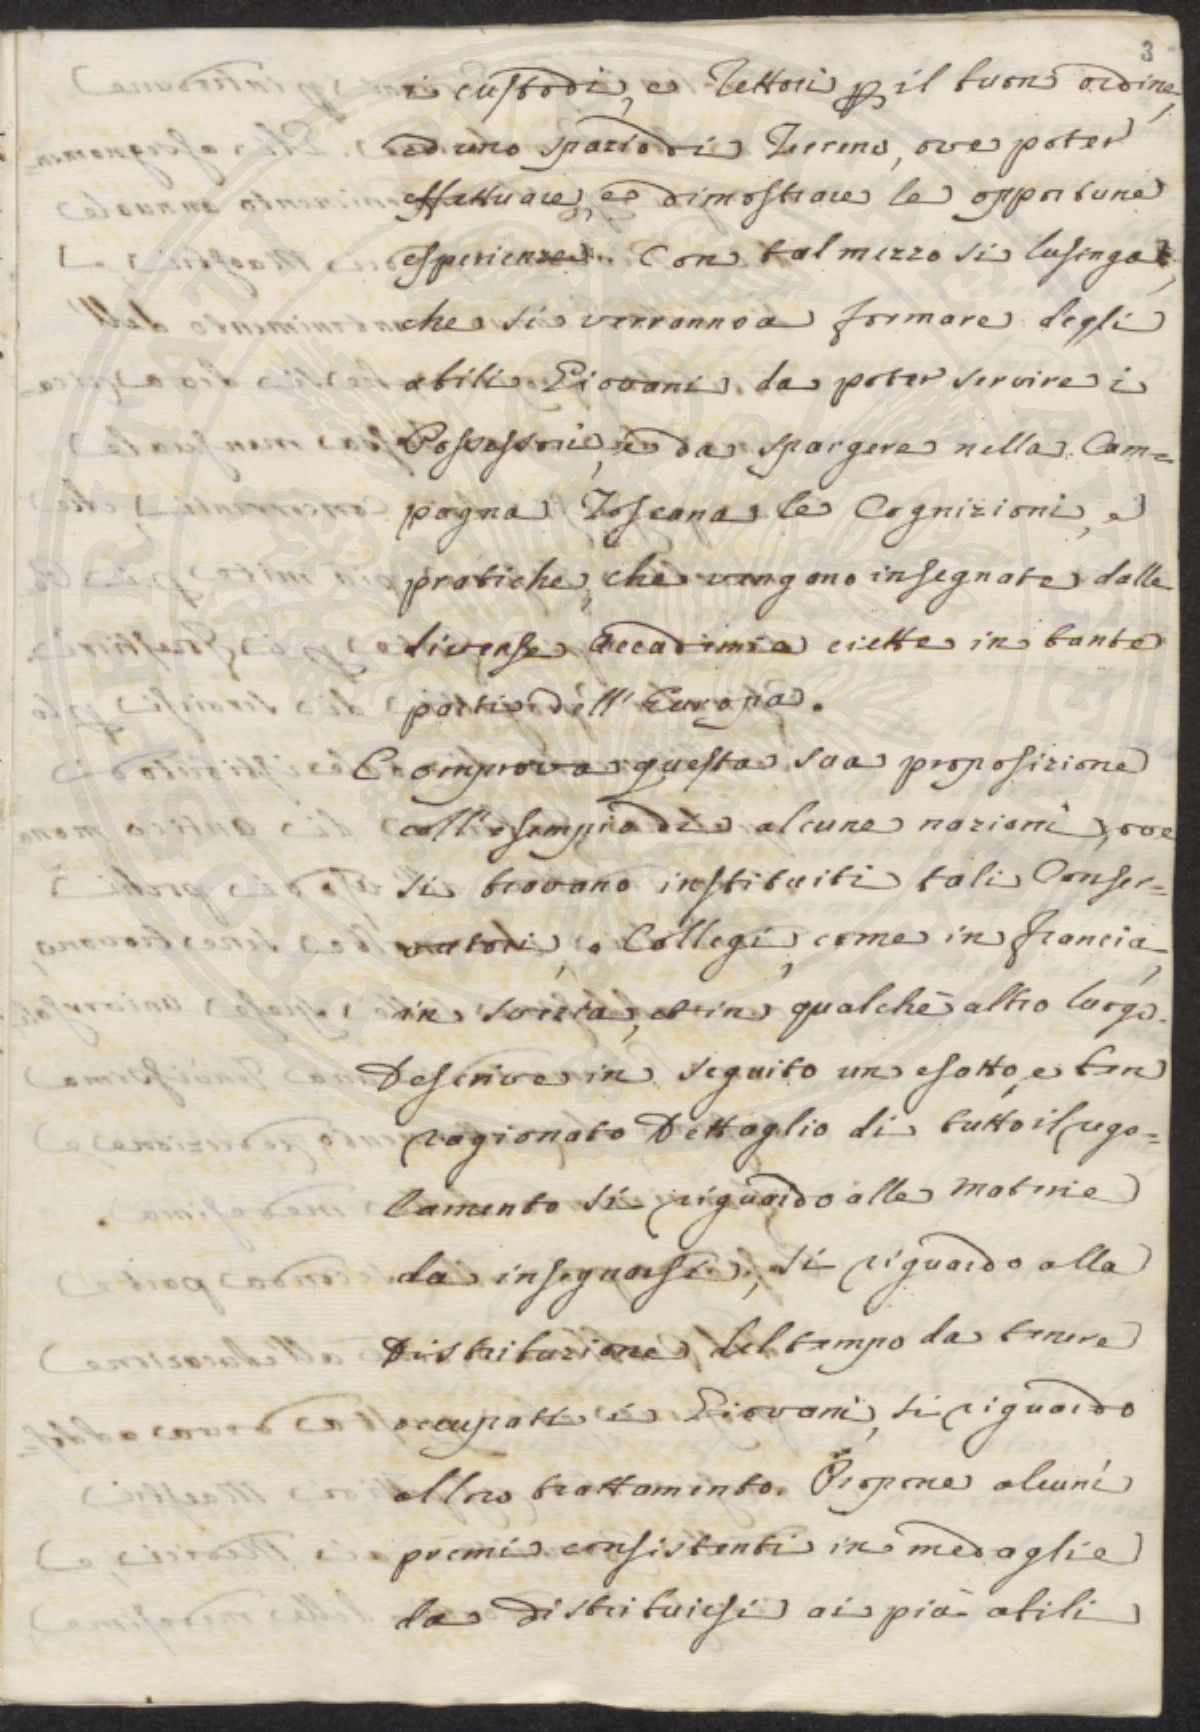 3
i custodi, e Rettori p il buon ordine,
ed uno spazio di Terreno, ove poter
effettuare, e dimostrare le opportune
esperienze. Con tal mezzo si lusinga,
che si verranno a formare degli
abili Giovani da poter servire i
Possessori, e da spargere nella Cam=
pagna Toscana le Cognizioni, e
pratiche, che vengono insegnate dalle
diverse Accademie erette in tante
parti dell' Europa.
Comprova questa sua proposizione
coll' esempio di alcune nazioni, ove
si trovano instituiti tali Conser=
vatori, o Collegi, come in Francia,
in Svezia, et in qualche altro luogo.
Descrive in seguito un esatto, e ben
ragionato Dettaglio di tutto il rego=
lamento si riguardo alle Materie
da insegnarsi, si riguardo alla
Distribuzione del tempo da tenere
occupati i Giovani, si riguardo
al loro trattamento. Propone alcuni
premi consistenti in medaglie
da distribuirsi ai più abili